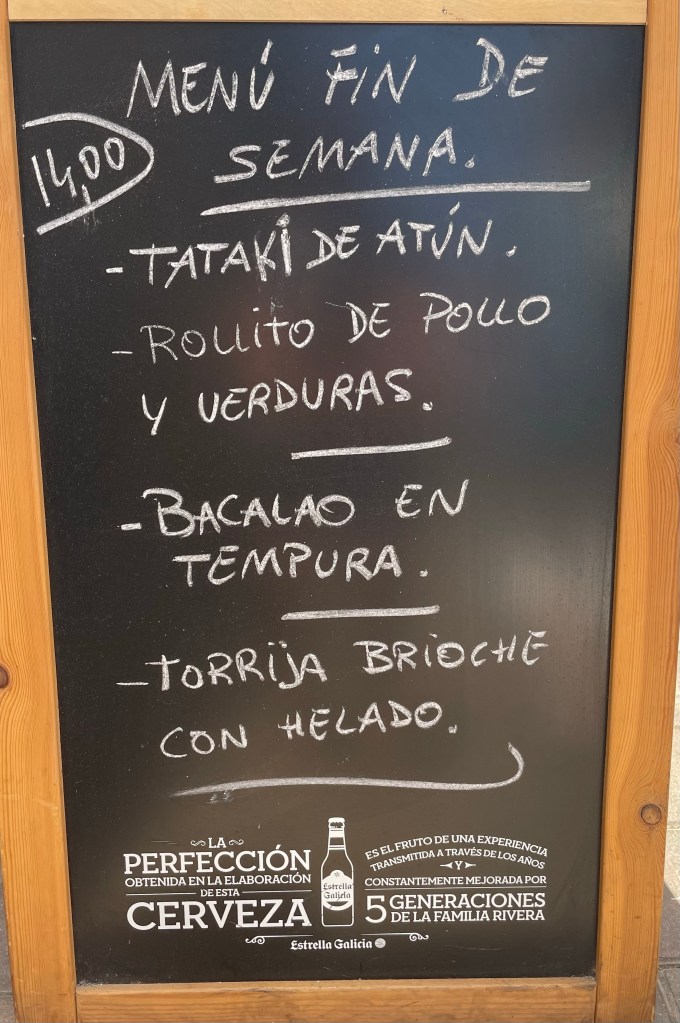 MENÚ FIN DE
SEMANA.
14,00
-TATAKI DE ATÚN.
-ROLLITO DE POLLO
Y VERDURAS.
-BACALAO EN
TEMPURA.
-TORRIJA BRIOCHE
CON HELADO.
LA
PERFECCIÓN
OBTENIDA EN LA ELABORACIÓN
DE ESTA
CERVEZA
Estrella
Galicia
ES EL FRUTO DE UNA EXPERIENCIA
TRANSMITIDA A TRAVÉS DE LOS AÑOS
Y
CONSTANTEMENTE MEJORADA POR
5 GENERACIONES
DE LA FAMILIA RIVERA
Estrella Galicia